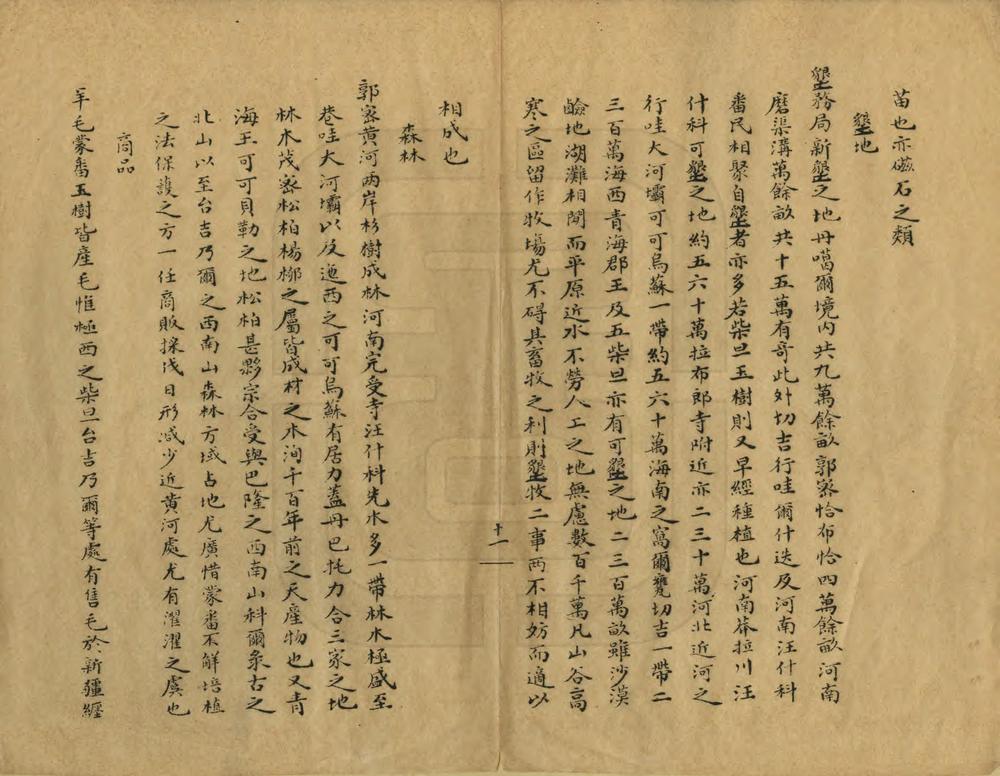 苗也亦磁石之類
墾地
墾務局新墾之地丹噶爾境内共九萬餘畝郭密恰布恰四萬餘畝河南
磨渠溝萬餘畝共十五萬有奇此外切吉行哇爾什迭及河南汪什科
番民相聚自墾者亦多若柴旦玉樹則又早經種植也河南莽拉川汪
什科可墾之地約五六十萬拉布郎寺附近亦二三十萬河北近河之
行哇大河壩可可烏蘇一帶約五六十萬海南之窩爾甕切吉一帶二
三百萬海西青海郡王及五柴旦亦有可墾之地二三百萬畝雖沙漠
鹼地湖灘相間而平原近水不勞人工之地無慮數百千萬凡山谷高
寒之區留作牧場尤不碍其畜牧之利則墾牧二事兩不相妨而適以
十一
相成也
森林
郭密黄河兩岸杉樹成林河南完受寺汪什科先木多一帶林木極盛至
巷哇大河壩以及迤西之可可烏蘇有居力蓋丹巴托力合三家之地
林木茂密松柏楊柳之屬皆成材之木洵千百年前之天產物也又青
海王可可貝勒之地松柏甚夥宗合受與巴隆之西南山科爾彔古之
北山以至台吉乃爾之西南山森林方域占地尤廣惜蒙番不解培植
之法保護之方一任商販採伐日形减少近黄河處尤有濯濯之虞也
商品
羊毛蒙番玉樹皆產毛惟極西之柴旦台吉乃爾等處有售毛於新疆纏